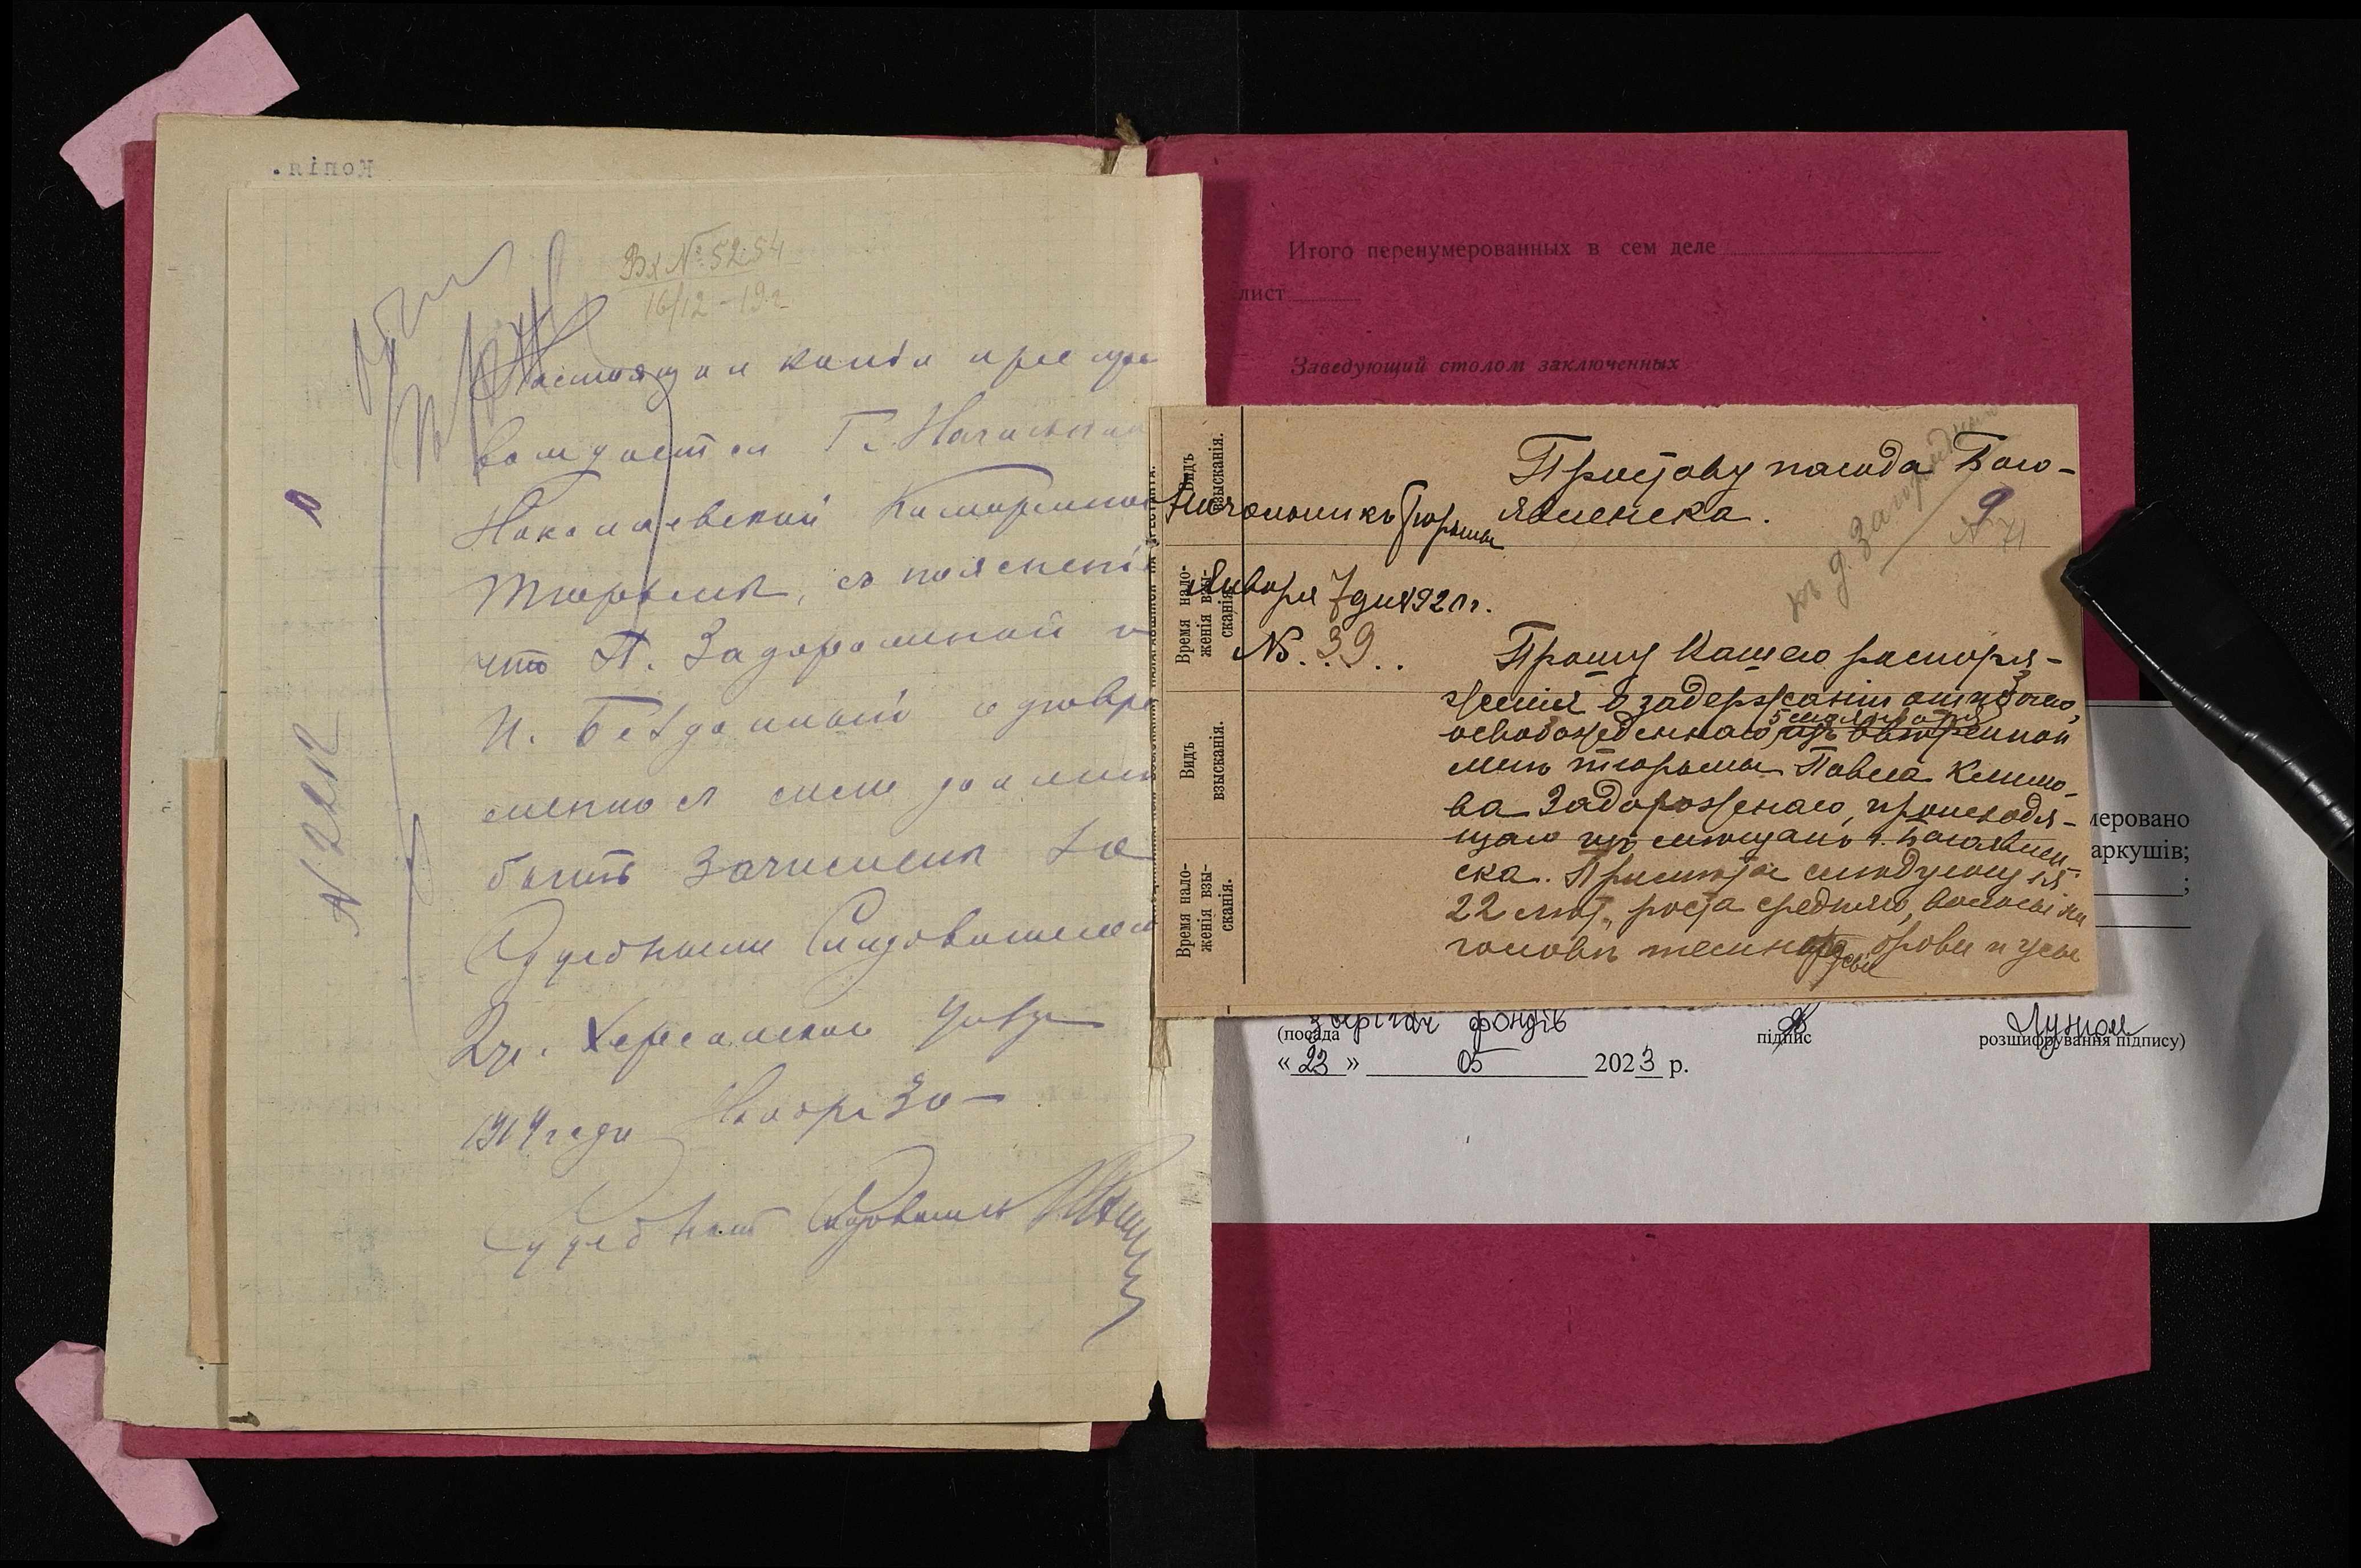 Копія.
Вх № 5254
16/12 – 19 г.
Настоящая копія препро
вождается Г. Начальник
Николаевской Каторжной
Тюрьмы, съ пояснені
что П. Задорожный и
И. Бездольный одновре
менно съ симъ должны
быть зачислены за
Судебнымъ Слѣдователемъ
2 уч. Херсонскаго уѣзда
1919 года Ноября 30
Судебный Слѣдователь
N 2212
Итого перенумерованных в сем деле
лист
Заведующий столом заключенных
Видъ взысканія.
Время нало-
женія взы-
сканія.
Видъ
взысканія.
Время нало-
женія взы-
сканія.
Приставу посада Бого-
явленска.
9
№ 71
къ д. Загородный
Начальникъ Тюрьмы
Января 7 дня 1920 г.
№. 39..
Прошу Вашего распоря-
женія о задержаніи ошибочно
освобожденнаго 5 сего января
изъ ввѣренной
мнѣ тюрьмы Павла Климо-
ва Задорожнаго, происходя-
щаго изъ мѣщанъ п. Богоявлен-
ска. Примѣты слѣдующія
22 лѣтъ, роста средняго, волосы на
головѣ темнорусые брови и усы
меровано
аркушів;
;
зберігач фондів
(посада
підпис
розшифрування підпису)
« 23 » 05 2023 р.